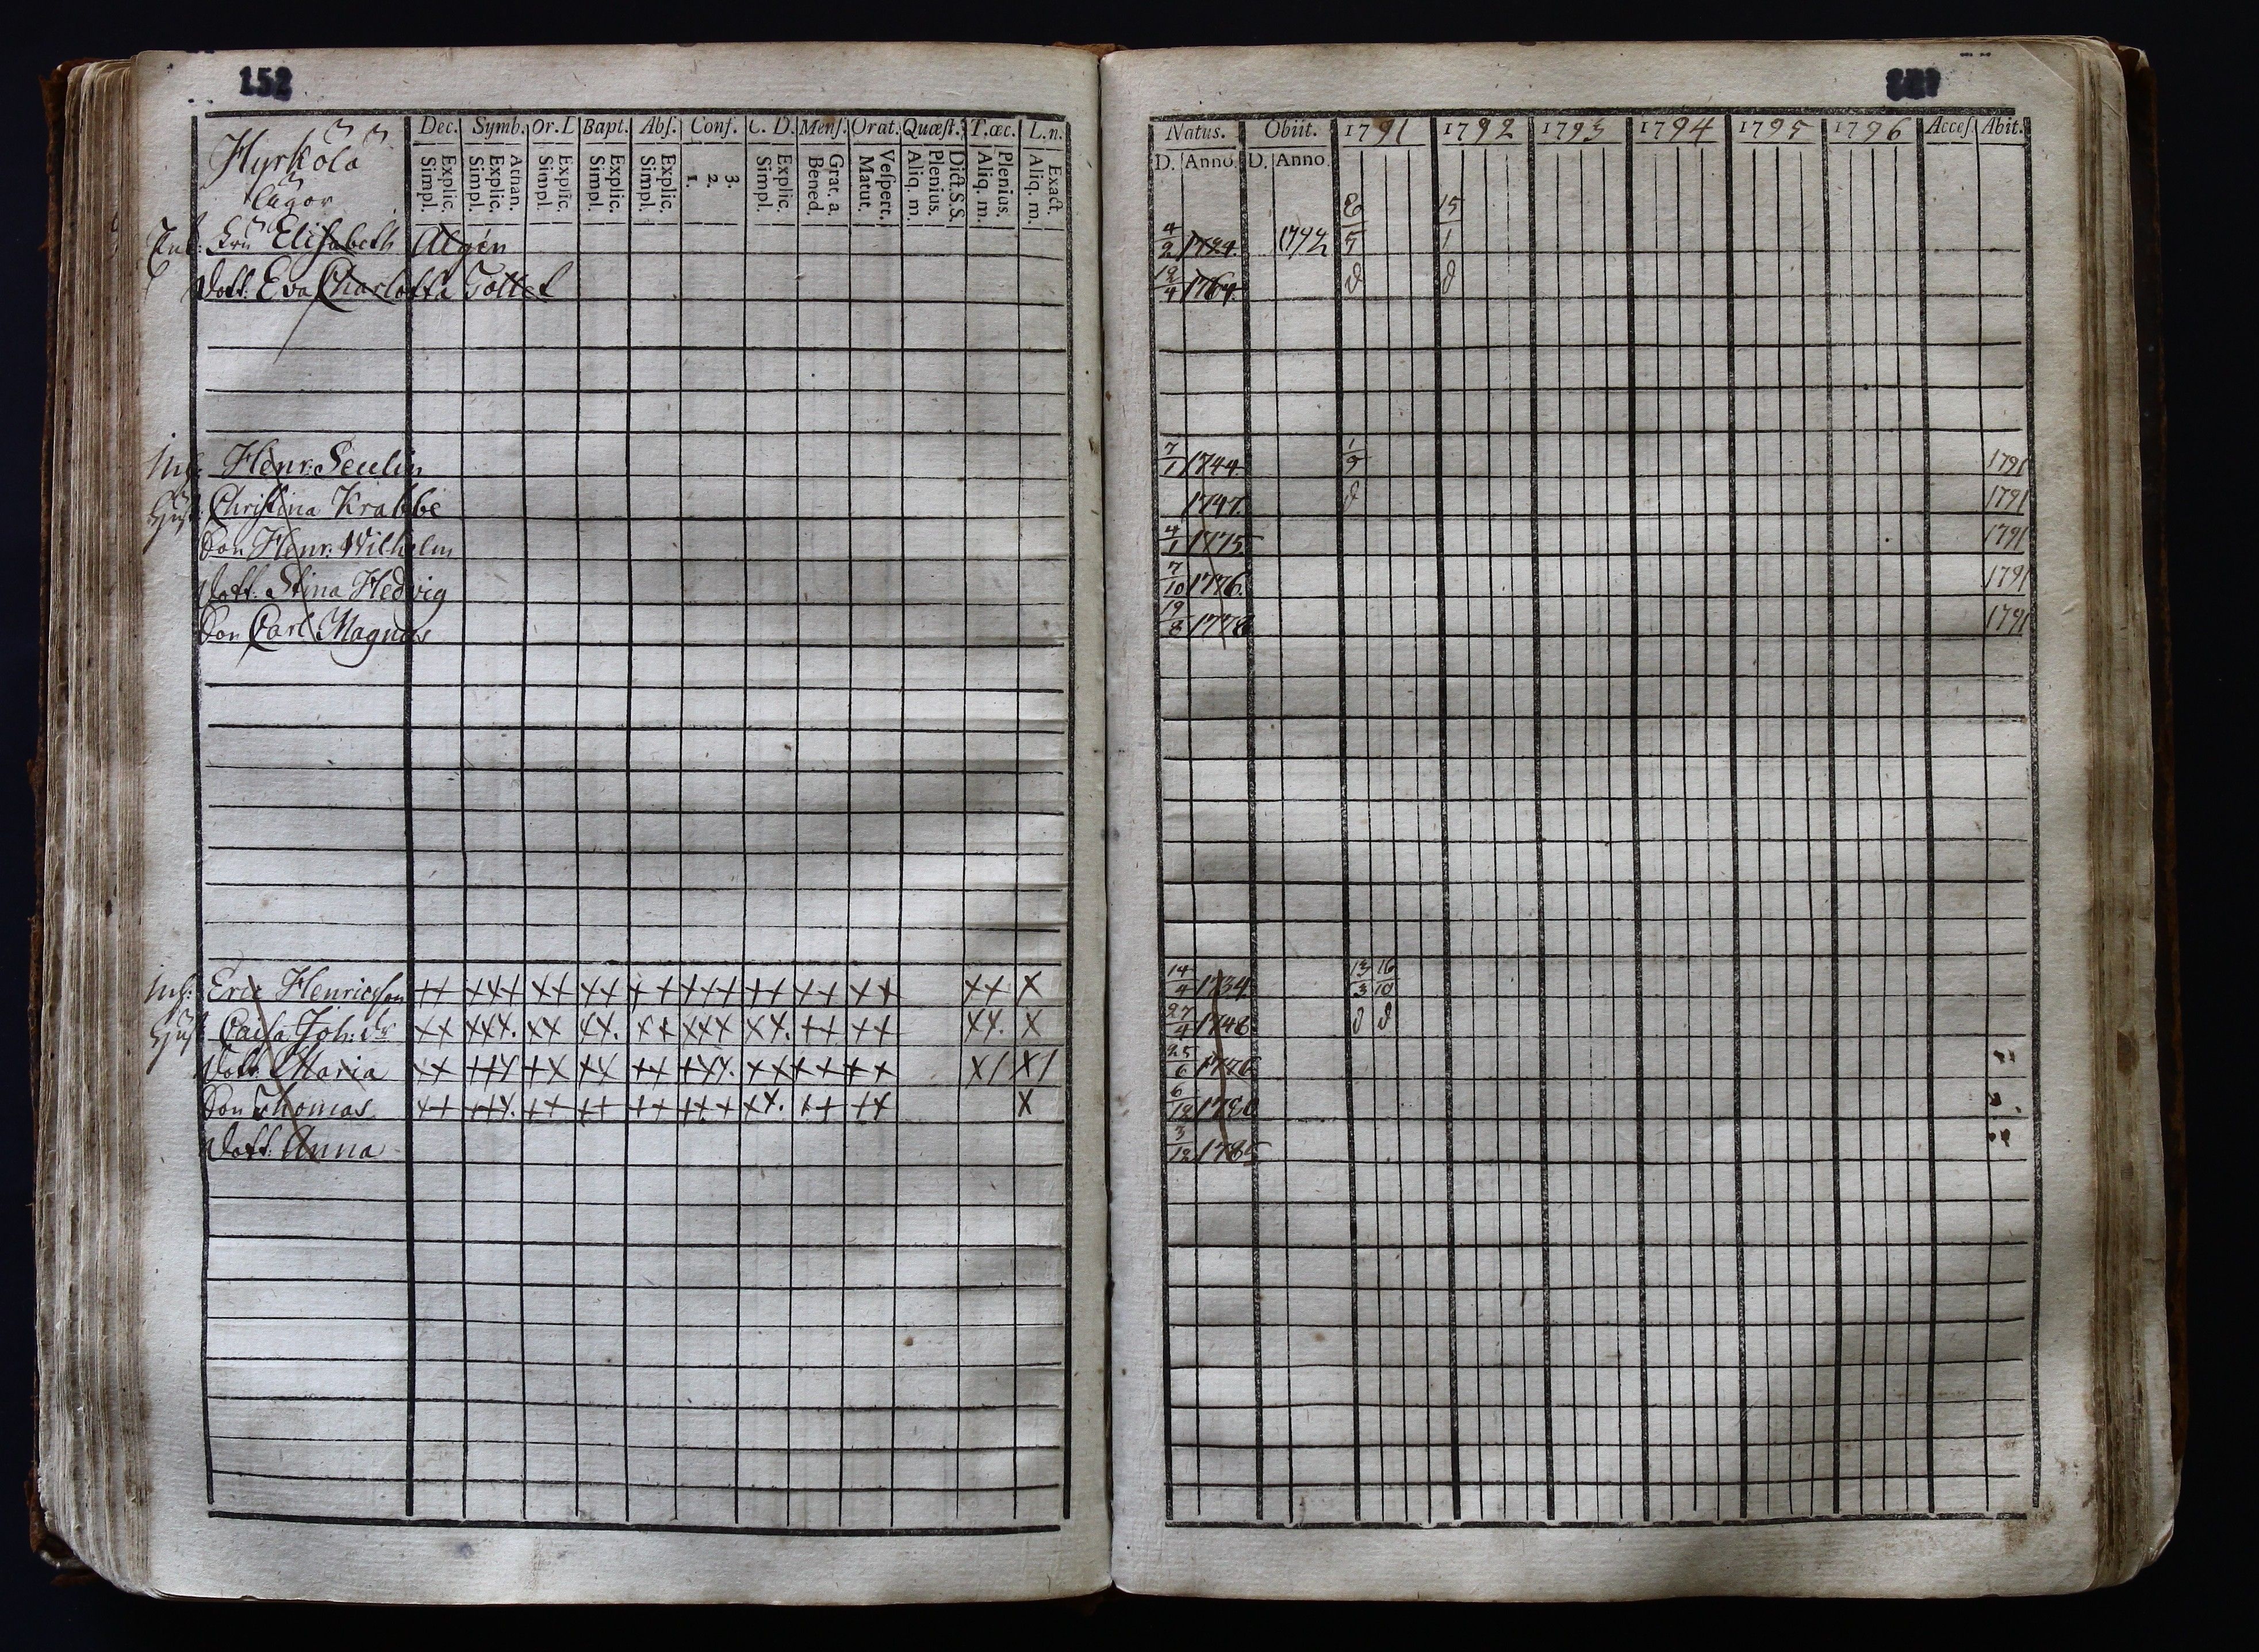 152
Hyrkölä
Dec. Symb. Or. D Bapt. Abſ. Conf. C. D. Menſ. Orat. Quæſt. T. œc. L. n.
Simpl. Explic. Simpl. Explic. Athan. Simpl. Explic. Simpl. Explic. Simpl. Explic. 1. 2. 3. Simpl. Explic. Bened. Grat. a. Matut. Veſpert. Aliq. m. Plenius. Dict. S.S. Aliq. m. Plenius. Aliq. m. Exact.
Elisabeth Algén
Dott. Eva Charlotta
Inh: Henr. Seulin
Hust: Christina Krabbe
Son Henr. Wilhelm
Dott. Stina Hedvig
Son Carl Magnus
Inh: Eric Henricsson ++ +++ ++ ++ ++ +++ ++ ++ ++ ++ +
Hust: Caisa Joh: dr ++ +++. ++ ++. ++ +++ ++. ++ ++ ++. +
Dott. Maria ++ +++ ++ ++ ++ +++. ++ ++ ++ +/ +/
Son Thomas ++ +++. ++ ++ ++ +++ ++. ++ ++ +
Dott. Anna
Natus. Obiit. 1791 1792 1793 1794 1795 1796 Acceſ. Abit.
D. Anno. D. Anno.
4/2 1724. 1792 5 15/1
12/4 1764. d d
7/1 1744. 1/9 1791
1747. d 1791
4/1 1775 1791
7/10 1776. 1791
19/8 1778 1791
14/4 1734. 13/3 16/10
27/4 1748. d d
25/6 1776
6/12 1780
3/12 1785